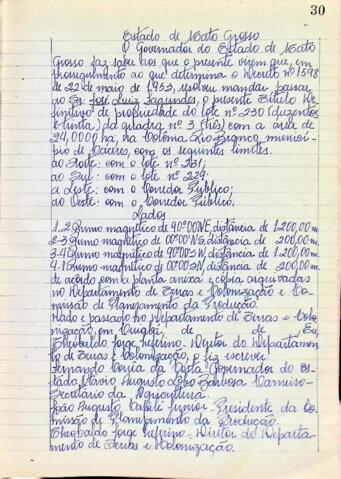 30
Estado de Mato Grosso
O Governador do Estado de Mato
Grosso faz saber aos que o presente virem que, em
prosseguimento ao que determina o Decreto nº 1598
de 22 de maio de 1953, resolveu mandar passar
ao Sr. José Luiz Fagundes, o presente Título De
finitivo de propriedade do lote nº 230 (duzentos
e trinta) da quadra nº 3 (três) com a área de
24,0000 ha, na Colônia Rio Branco, municí
pio de Cáceres, com os seguintes limites:
ao Norte: com o lote nº 231;
ao Sul: com o lote nº 229;
a Leste: com o Corredor Público;
ao Oeste: com o Corredor Público.
Lados
1-2 Rumo magnético de 90º00'NE, distância de 1.200,00 m.
2-3 Rumo magnético de 00º00'NS, distância de 200,00 m.
3-4 Rumo magnético de 90º00'SW, distância de 1.200,00 m.
4-1 Rumo magnético de 00º00'SN, distância de 200,00 m.
de acôrdo com a planta anexa e cópia arquivadas
no Departamento de Terras e Colonização e Co-
missão de Planejamento da Produção.
Dado e passado no Departamento de Terras e Colo-
nização, em Cuiabá, de de Eu,
Theobaldo Jorge Diretor do Departamen
to de Terras e Colonização, o fiz escrever
Fernando Corrêa da Costa, Governador do Es-
tado, Otávio Augusto Lobo Barbosa Carneiro-
Secretário da Agricultura.
João Augusto Junior - Presidente da Co-
missão de Planejamento da Produção.
Theobaldo Jorge - Diretor do Departa-
mento de Terras e Colonização.